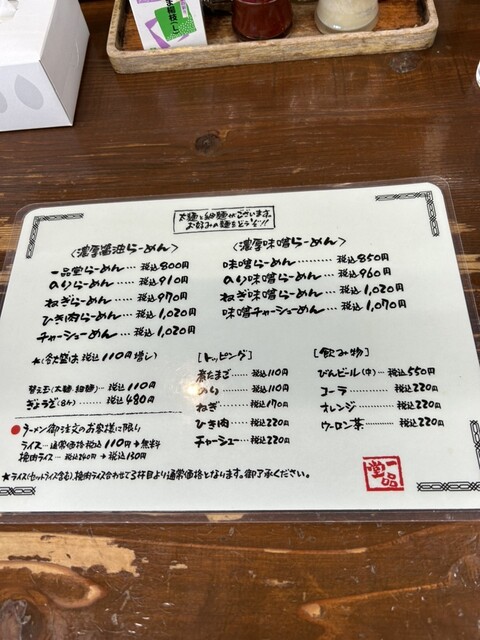 太麺と細麺がございます。
お好みの麺をどうぞ!!
〈濃厚醤油らーめん〉
一品堂らーめん……税込800円
のりらーめん……税込910円
ねぎらーめん……税込970円
ひき肉らーめん……税込1,020円
チャーシューめん……税込1,020円
★(各大盛は税込110円増し)
替え玉(太麺・細麺)…税込110円
ぎょうざ(8ケ)……税込480円
●ラーメン御注文のお客様に限り
ライス…通常価格税込110円→無料
挽肉ライス…税込240円→税込130円
〈濃厚味噌らーめん〉
味噌らーめん……税込850円
のり味噌らーめん…税込960円
ねぎ味噌らーめん…税込1,020円
味噌チャーシューめん…税込1,070円
[トッピング]
煮たまご……税込110円
のり……税込110円
ねぎ……税込170円
ひき肉……税込220円
チャーシュー…税込220円
[飲み物]
びんビール(中)…税込550円
コーラ……税込220円
オレンジ……税込220円
ウーロン茶……税込220円
★ライス(セットライス含む)、挽肉ライス合わせて3杯目より通常価格となります。御了承ください。
一品堂